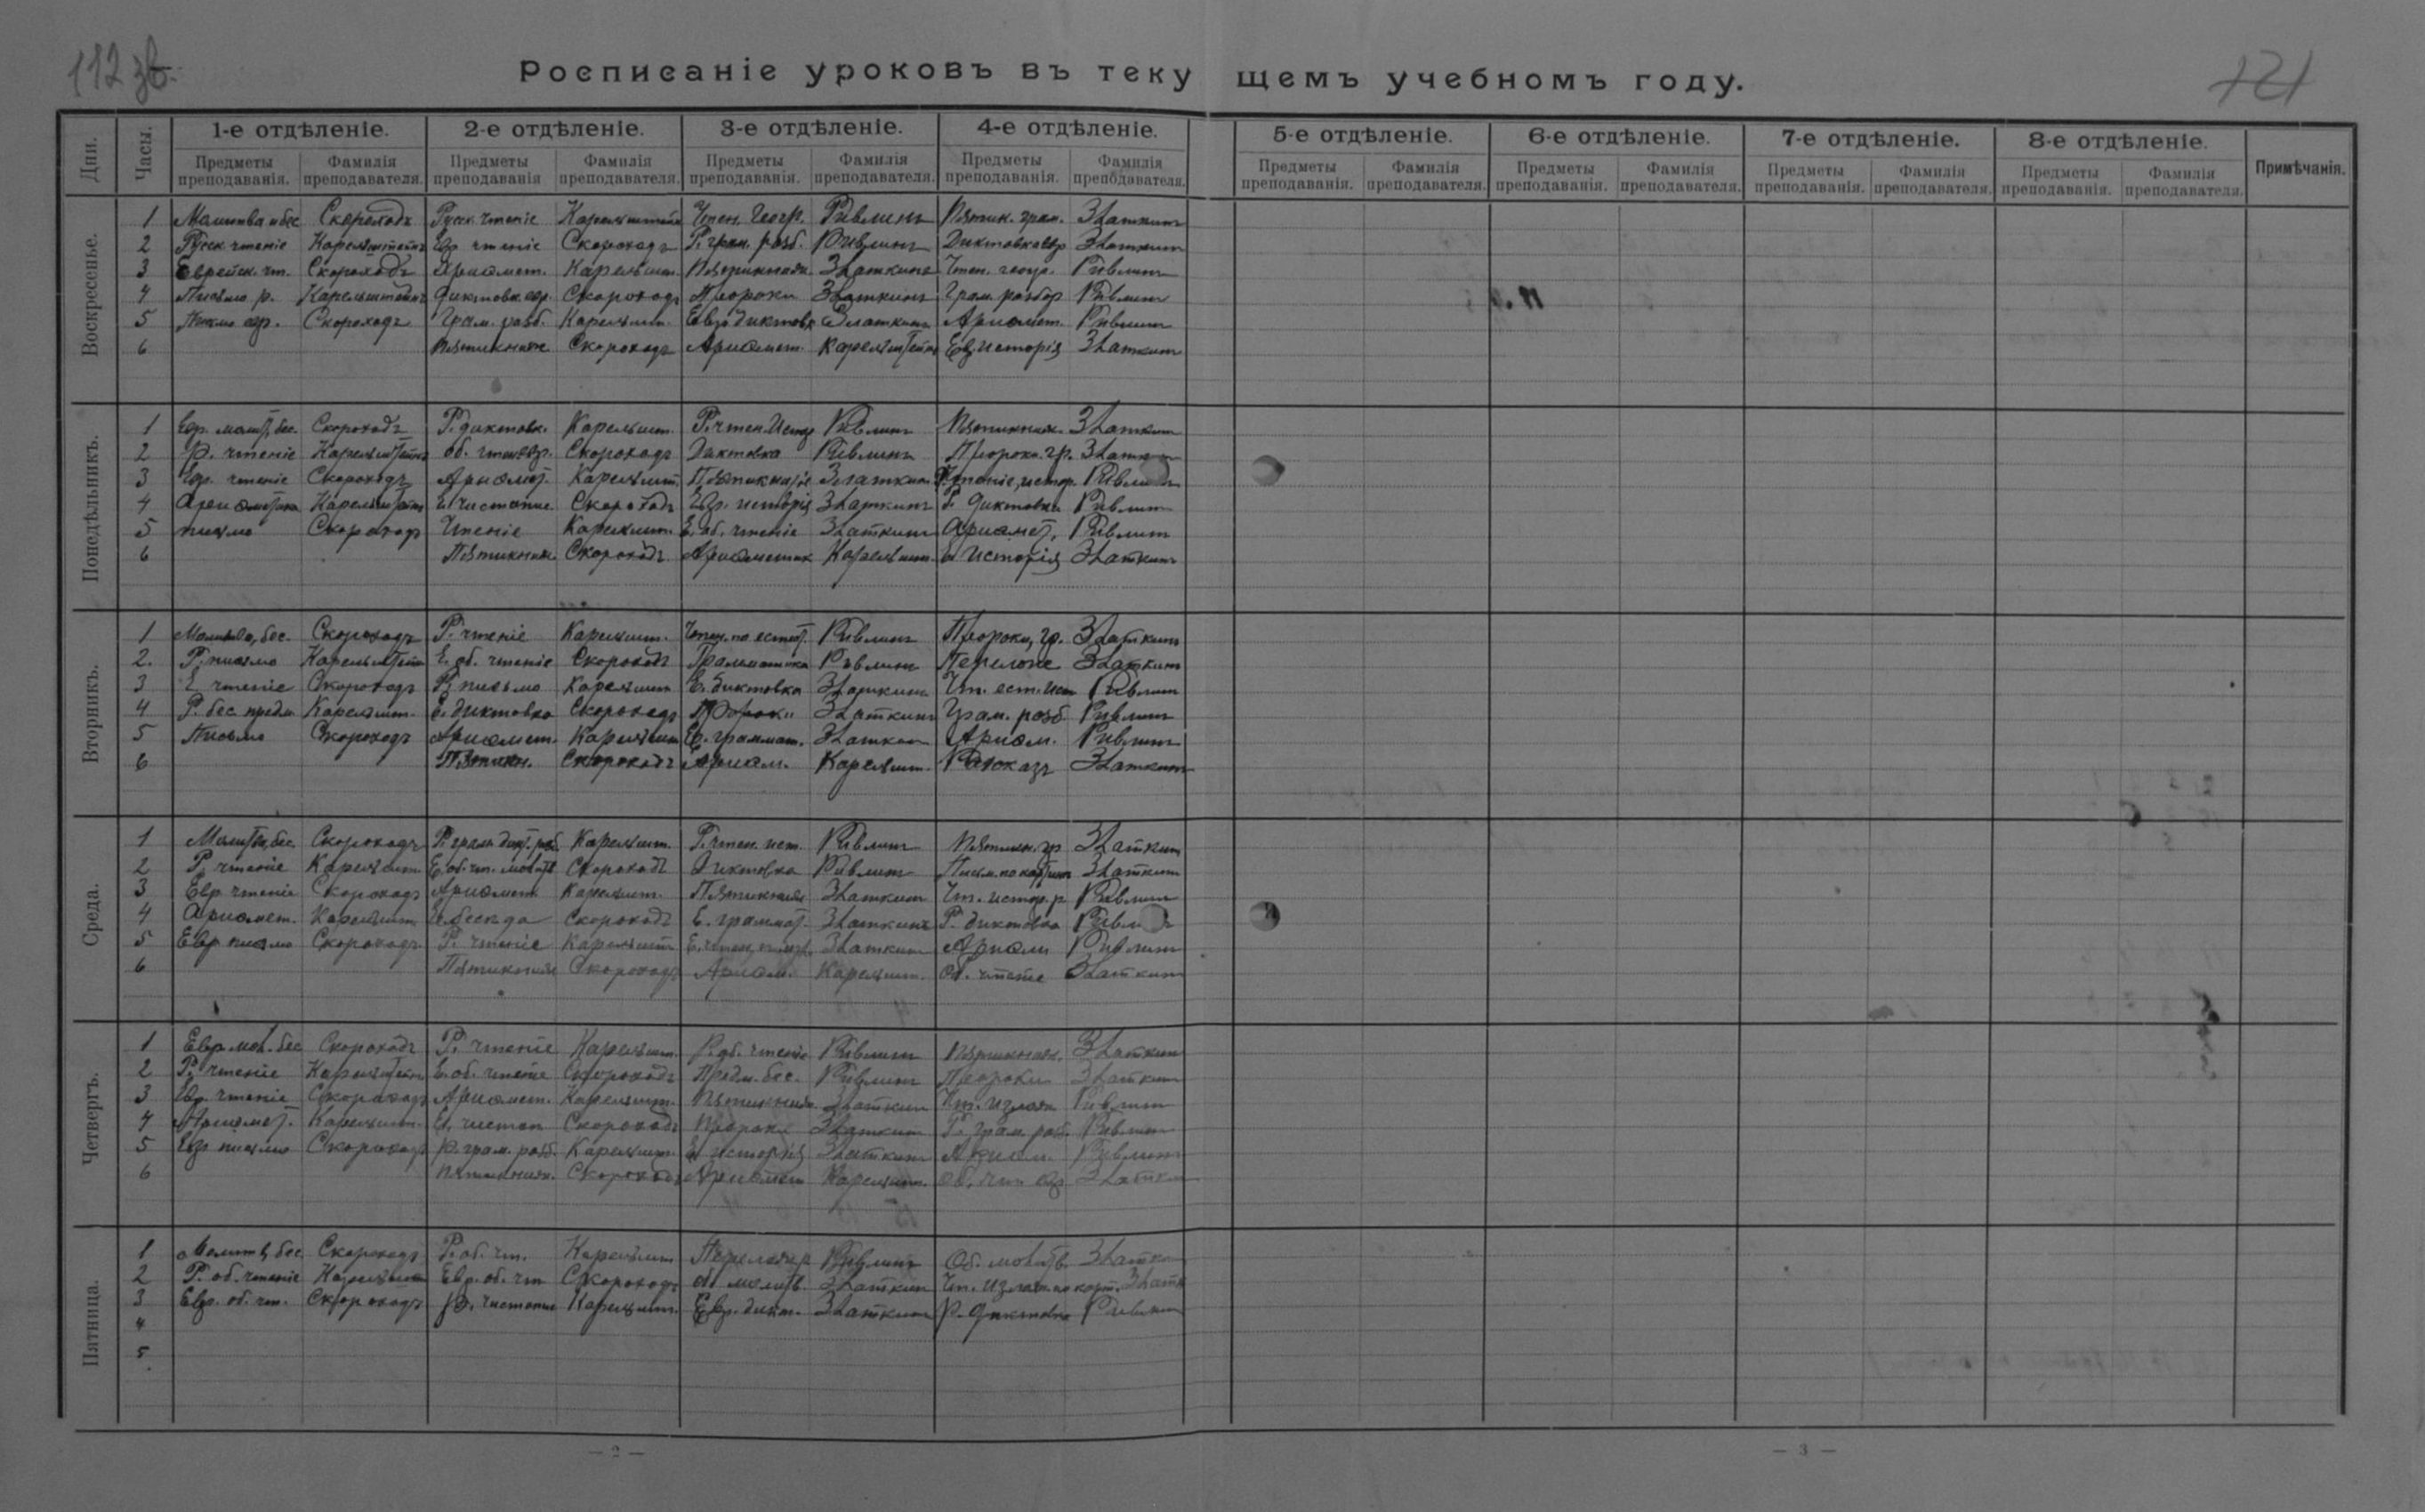 112 зв.
Росписаніе уроковъ въ текущемъ учебномъ году.
121
Дни. Часы. 1-е отдѣленіе. 2-е отдѣленіе. 3-е отдѣленіе. 4-е отдѣленіе. 5-е отдѣленіе. 6-е отдѣленіе. 7-е отдѣленіе. 8-е отдѣленіе. Примѣчанія.
Предметы преподаванія. Фамилія преподавателя. Предметы преподаванія Фамилія преподавателя. Предметы преподаванія. Фамилія преподавателя. Предметы преподаванія. Фамилія преподавателя. Предметы преподаванія. Фамилія преподавателя. Предметы преподаванія. Фамилія преподавателя. Предметы преподаванія. Фамилія преподавателя. Предметы преподаванія. Фамилія преподавателя.
Воскресенье.
1 Молитва и бес Скороходъ Русск. чтеніе Карельштейн Чтен. Геогр. Ривлинъ Пятик. грам. Златкинъ
2 Русск чтеніе Карельштейнъ Евр чтеніе Скороходъ Р. грам. разб. Ривлинъ Диктовка евр Златкинъ
3 Еврейск. чт. Скороходъ Ариѳмет. Карельшт. Пятикнижіе Златкинъ Чтен. геогр. Ривлинъ
4 Письмо р. Карельштейнъ Диктовк. евр. Скороходъ Пророки Златкинъ Грам. разбор Ривлинъ
5 Письмо евр. Скороходъ Грам. разб. Карельшт. Евр диктовк Златкинъ Ариѳмет. Ривлинъ
6 Пятикниж Скороходъ Ариѳмет. Карельштейнъ Ев. исторія Златкинъ
Понедѣльникъ.
1 Евр. молит, бес. Скороходъ Р. диктовк. Карельшт. Р. чтен. Истор Ривлинъ Пятикниж. Златкинъ
2 Р. чтеніе Карельштейнъ об. чтен евр. Скороходъ Диктовка Ривлинъ Пророки. гр. Златк
3 Евр. чтеніе Скороходъ Ариѳмет. Карельшт. Пятикнижіе Златкинъ Чтеніе, истор. Ривлин
4 Ариѳметика Карельштейн Е. чистопис Скороходъ Евр. исторія Златкинъ Р. диктовка Ривлинъ
5 письмо Скороходъ Чтеніе Карельшт. Е. об. чтеніе Златкинъ Ариѳмет. Ривлинъ
6 Пятикниж. Скороходъ Ариѳметик Карельшт. Е. исторія Златкинъ
Вторникъ.
1 Молитва, бес. Скороходъ Р. чтеніе Карельшт. Чтен. по естест. Ривлинъ Пророки, гр. Златкинъ
2. Р. письмо Карельштейн Е. об. чтеніе Скороходъ Грамматика Ривлинъ Перелож Златкинъ
3 Е чтеніе Скороходъ Р. письмо Карельшт Е. диктовка Златкинъ Чт. ест. Ривлинъ
4 Р. бес. предм. Карельшт. Е. диктовка Скороходъ Пророки Златкинъ Грам. разб Ривлинъ
5 Письмо Скороходъ Ариѳмет. Карельшт Ев. граммат. Златкин Ариѳм. Ривлинъ
6 Пятикн. Скороходъ Ариѳм. Карельшт. Разсказъ Златкинъ
Среда.
1 Молитва, бес Скороходъ Р. грам Карельшт. Р. чтен. ист. Ривлинъ Пятикн. гр Златкин
2 Р. чтеніе Карельшт. Е. об. чт. молитв Скороходъ Диктовка Ривлинъ Письм. по картин Златкин
3 Евр чтеніе Скороходъ Ариѳмет Карельшт. Пятикниж Златкин Чт. истор. р. Ривлин
4 Ариѳмет. Карельшт Е. бесѣда Скороходъ Е. граммат. Златкинъ Р. диктовка Ривл
5 Евр письмо Скороходъ. Р. чтеніе Карельшт Златкин Ариѳм Ривлин
6 Пятикниж Скороходъ Ариѳм. Карельшт. Об. чтеніе Златкин
Четвергъ.
1 Евр мол. бес Скороходъ Р. чтеніе Карельшт. Р. об. чтеніе Ривлинъ Пятикниж. Златкин
2 Р. чтеніе Карельштейн Е. об. чтеніе Скороходъ Предм. бес. Ривлинъ Пророки Златкин
3 Евр. чтеніе Скороходъ Ариѳмет. Карельшт. Пятикниж. Златкин Чт. излож Ривлин
4 Ариѳмет. Карельшт. Е. чистоп Скороходъ Пророки Златкин Р. грам. разб. Ривлин
5 Евр письмо Скороходъ Р. грам. разб. Карельшт. Е исторія Златкин Ариѳм. Ривлин
6 Пятикниж. Скороходъ Ариѳмет Карельшт. Об. чт. евр Златкин
Пятница.
1 Молитв, бес Скороходъ Р. об. чт. Карельшт Ривлинъ Об. молитв. Златкин
2 Р. об. чтеніе Карельшт Евр. об. чт Скороходъ Об молитв. Златкин Чт. излож. по карт. Златк
3 Евр. об. чт. Скороходъ Р. чистопис Карельшт. Евр. дикт. Златкин Р. диктовка Ривлин
4
5
— 2 —
— 3 —